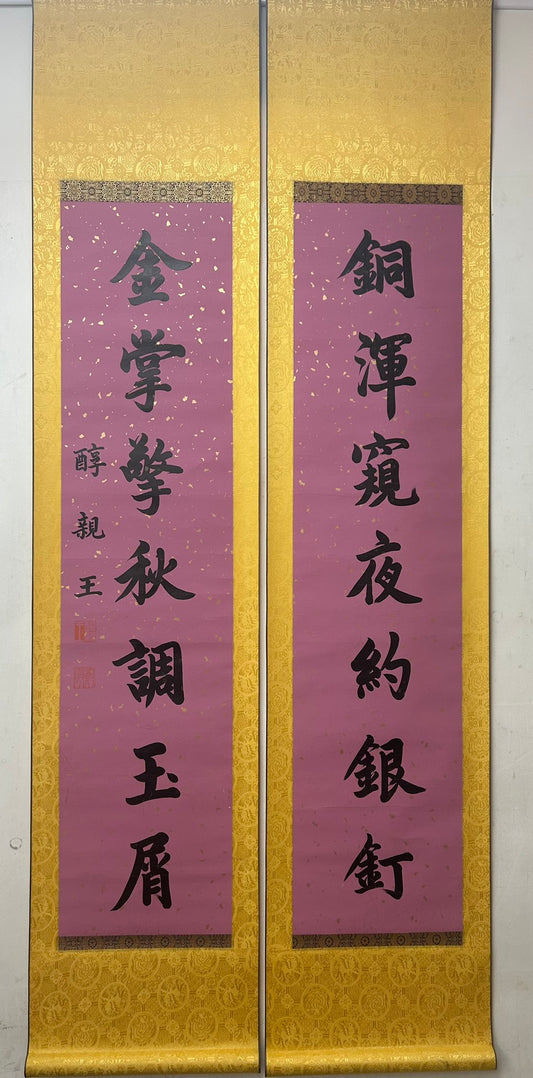 銅渾窺夜約銀釘
金掌擎秋調玉屑
醇親王